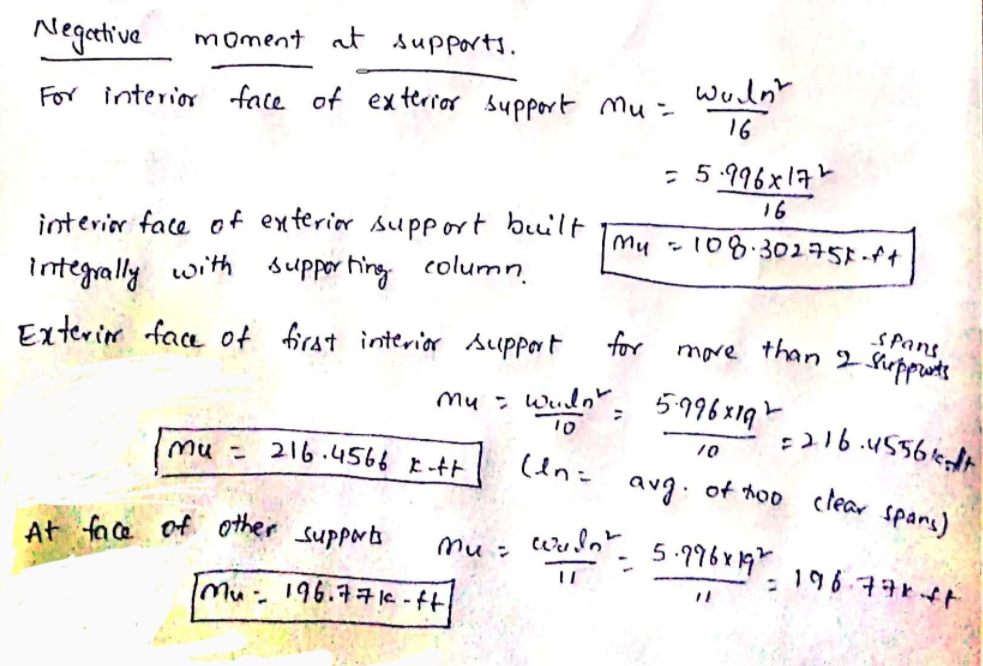 Negative moment at supports.
For interior face of exterior support Mu = Wuln²/16
= 5.996x17²/16
interior face of exterior support built
integrally with supporting column.
Mu = 108.30275k-ft
Exterior face of first interior support for more than 2 spans supports
Mu = Wuln²/10 = 5.996x19²/10 = 216.4556 k-ft
Mu = 216.4566 k-ft
(ln = avg. of two clear spans)
At face of other supports Mu = Wuln²/11 = 5.996x19²/11 = 196.77k-ft
Mu = 196.77k-ft